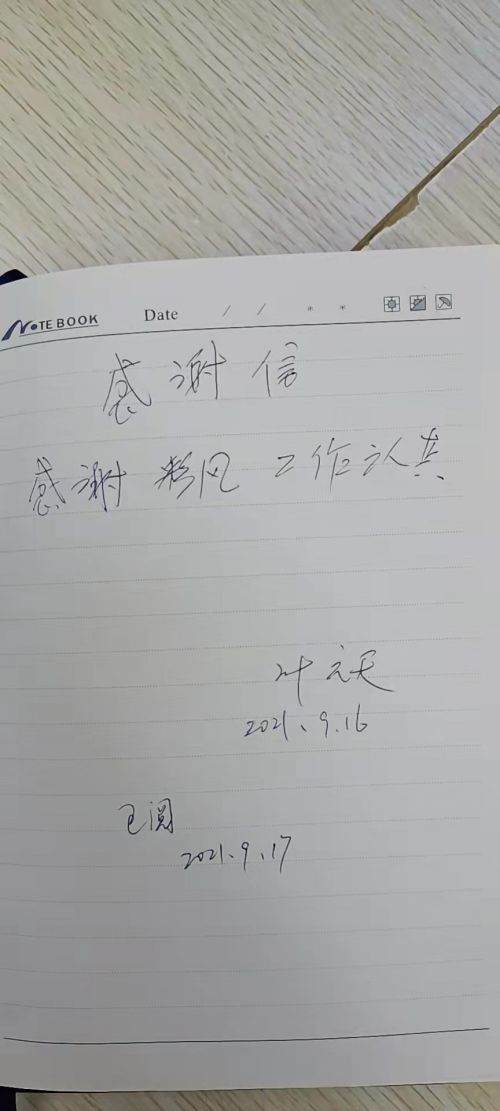 NOTE BOOK Date / / * *
感谢信
感谢彩凤 工作认真
叶云天
2021、9.16
已阅
2021、9、17